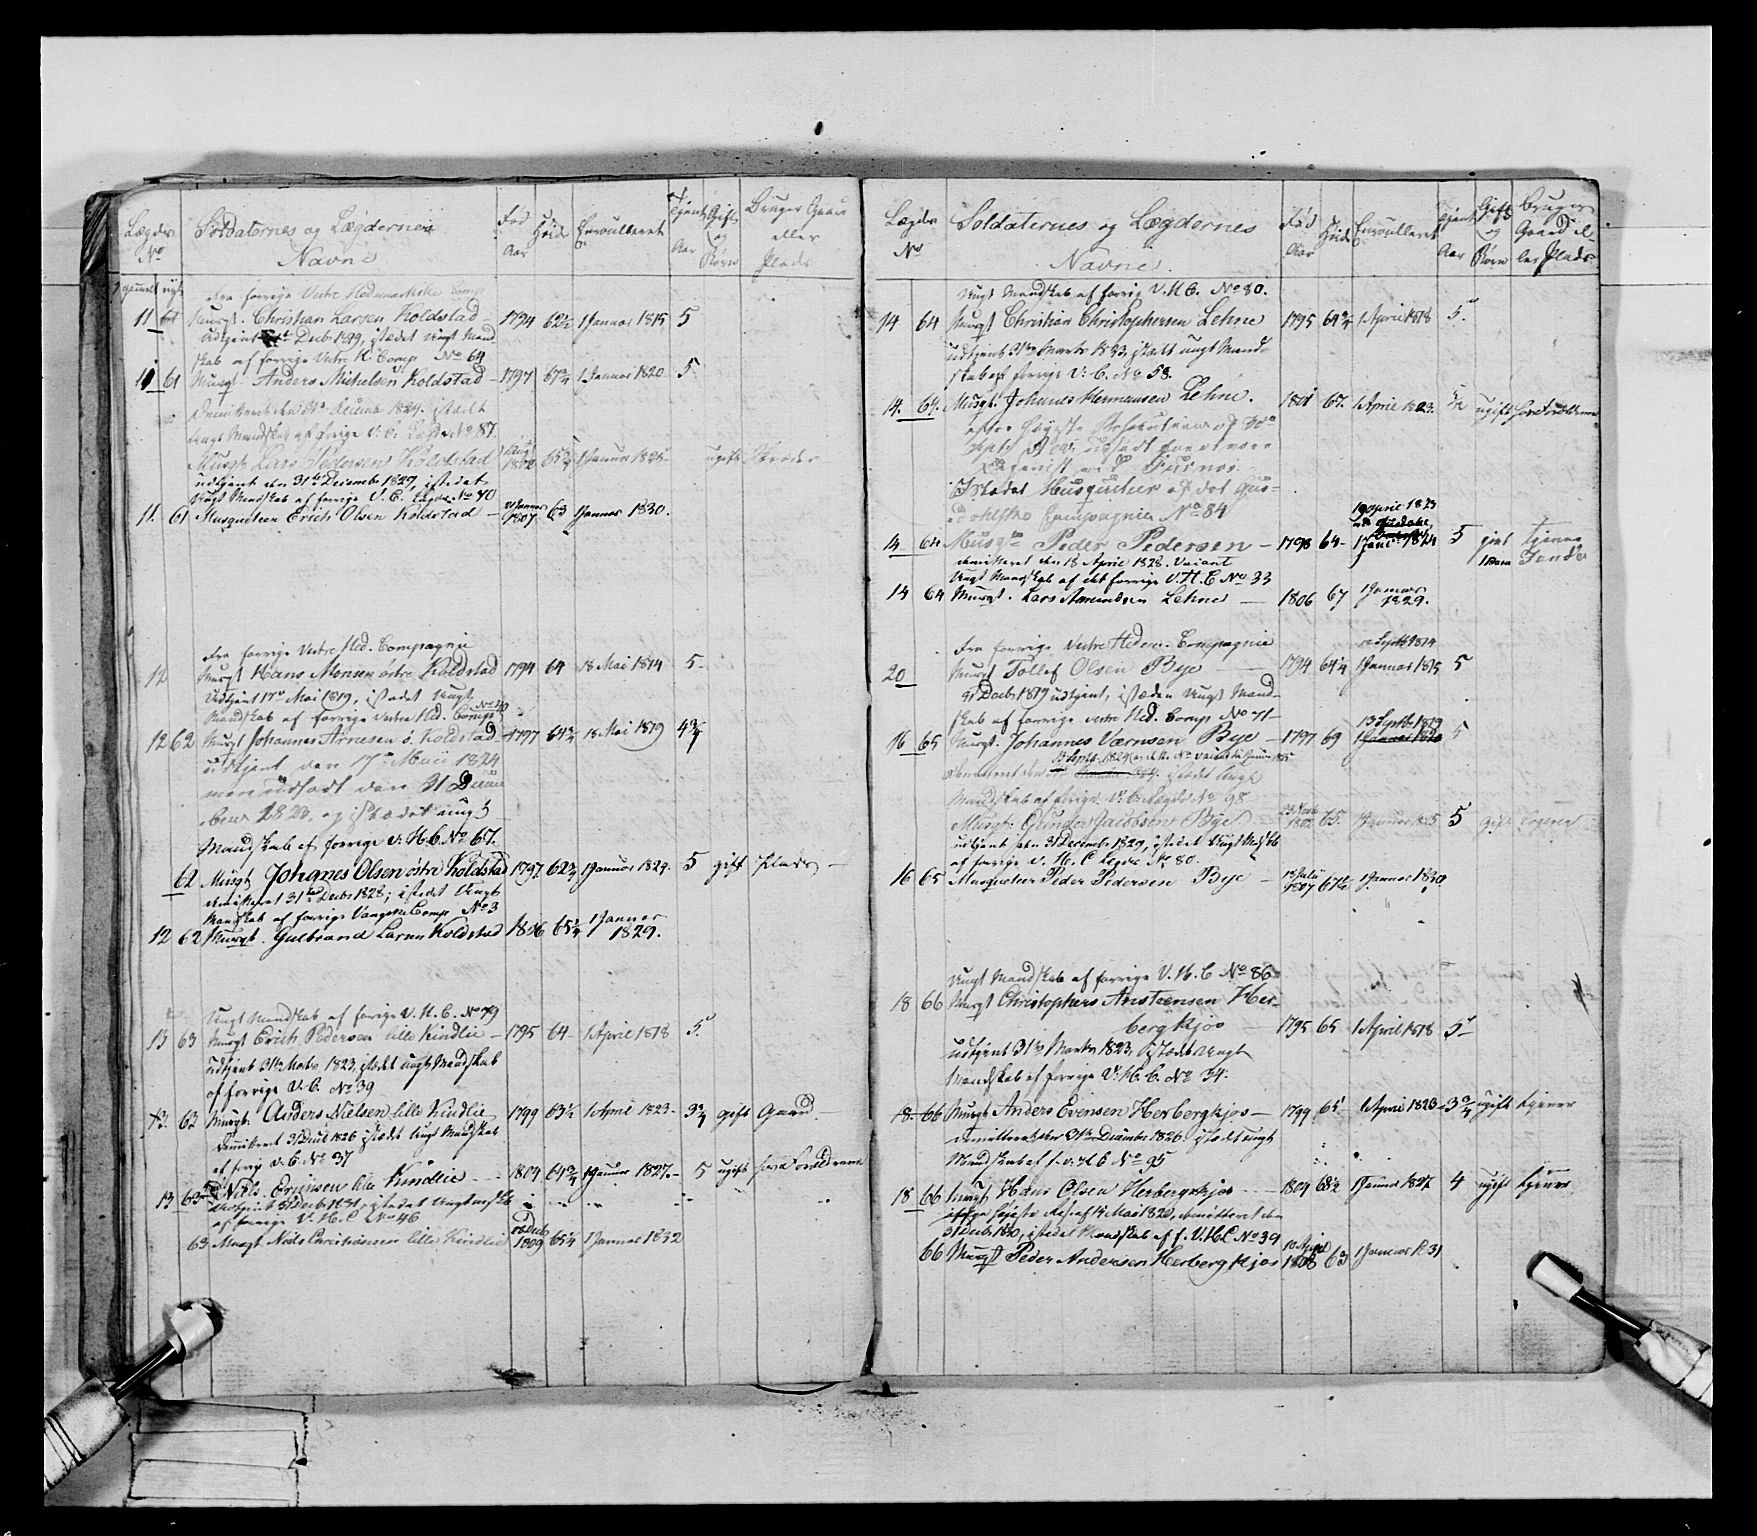 Lægds No
Soldaternes og Lægdernes Navne
Fød Aar
Høide
Enroulleret
Tjent Aar
Gift og Børn
Bruger Gaard eller Plads
gammelt nyt
fra forrige Vestre Hedemarkske Comp
11 61 Musqt. Christian Larsen Koldstad 1794 62½ 1 Januar 1815 5
udtjent Decb 1819, istædet Ungt Mand
skab af forrige Vestre H. Comp No 64
11 61 Musqt. Anders Michelsen Koldstad 1797 67¾ 1 Januar 1820 5
Demitteret den 31te Decemb 1824. istædt
Ungt Mandskab af forrige V. C. Lægd No 87.
Musqt Lars Pedersen Koldstad 1802 65¾ 1 Januar 1825 ugift
udtjent den 31te Decembr 1829, istedet
Ungt Mandskab af forrige V. C. Lægd No 40
11. 61 Musqueteer Erich Olsen Koldstad 21 Januar 1807 63 1 Januar 1830.
fra forrige Vestre Hed. Compagnie
12 Musqt Hans Monsen østre Koldstad 1794 64 18 Mai 1814 5
Udtjent 17de Mai 1819, istædet Ungt
Mandskab af forrige Vestre Hed. Comp No 40
12 62 Musqt Johannes Arnesen ø. Koldstad 1797 64¾ 18 Mai 1819 4¾
udtjent den 17de Maii 1824
men udsadt den 31 Decem
ber 1823, og istædet ungt
Mandskab af forrige V. H. C. No 67.
62 Musqt Johannes Olsen østre Koldstad 1797. 62¾ 1 Januar 1824. 5 gift Plads
demitteret 31te Decbr 1828, istedet Ungt
Mandskab af forrige Vangske Comp No 3
12 62 Musqt. Gulbrand Larsen Koldstad 1806 65¼ 1 Januar 1829.
Ungt Mandskab af forrige V. H. C. No 79
13 63 Musqt Erich Pedersen lille Kindlie 1795 64 1 April 1818 5.
udtjent 31te Marts 1823, istædet ungt Mandskab
af forrige V. C. No 39
13. 63 Musqt: Anders Nielsen lille Kindlie 1799 63½ 1 April 1823 3¾ gift Gaard
Demitteret 31 Decbr 1826 istædet Ungt Mandskab
af forrig V. C. No 37
13 63 Niels Erichsen lille Kindlie 1804 64¾ 1 Januar 1827. 5 ugift hos Forældrene
udtjent 31 Decb 1831, istedet Ungt Mdskb
af forrige V. H. C No 46
63 Musqt Niels Christiansen lille Kindlie 1809 65¼ 1 Januar 1832
Lægds No
Soldaternes og Lægdernes Navne.
Fød Aar
Høide
Enroulleret
Tjent Aar
Gift og Børn
Bruger Gaard eller Plads
Ungt Mandskab af forrig V. H. C. No 80.
14 64 Musqt Christian Christophersen Lehne 1795 64¾ 1 April 1818 5.
udtjent 31te Marts 1823, istædt ungt Mand-
skab af forrige V. C. No 58.
14. 64. Musqt. Johannes Hermansen Lehne. 1801 67. 1 April 1823. ugift hos Forældrene
efter høyeste Resolution af
Istædet Musqueteer af det
Compagnie No 84
14 64 Musqt Peder Pedersen 1798 64 19 April 1823 1 Janr 1824 5 givt 1 Barn tjener
demitteret den 18 April 1828. Vacant
Ungt Mandskab af det forrige V. H. C No 33
14 64 Musqt. Lars Amundsen Lehne 1806 67 1 Januar 1829.
fra forrige Vestre Hedm. Compagnie
20 Musqt Tollef Olsen Bye 1794 64¼ Septb 1814 1 Januar 1815 5
31 Decb 1819 udtjent, istæden Ungt Mand-
skab af forrige Vestre Hed. Comp No 71
16 65 Musqt. Johannes Værnsen Bye 1797 69 13 Septb. 1819 1 Januar 1820 5
istædet Ungt
Mandskab af forige V. C. Lægds No 98
Musqt: Gunder Jacobsen Bye 1802 65. 1 Januar 1825 5 gift
udtjent den 31 Decembr 1829, istedet Ungt Mdskb
af forrige V. H. C Lægd No 80.
16 65 Musqueteer Peder Pedersen Bye 13 Juli 1807 67½ 1 Januar 1830
Ungt Mandskab af forrige V. H. C No 86
18 66 Musqt Christopher Anstensen Her-
bergkjos 1795 65 1 April 1818 5
udtjent 31te Marts 1823, istædet Ungt
Mandskab af forrige V. H. C. No 34.
18. 66 Musqt Anders Evensen Herbergkjos 1799 65 1 April 1823 3¾ ugift tjener
demitteret den 31te Decembr 1826 istædet ungt
Mandskab af f. V. H C No 95
18 66 Musqt Hans Olsen Herbergkjos 1804 63½ 1 Januar 1827 4 ugift tjener
høieste Res. af 14 Mai 1820, demitteret den
31 Decb 1830, istedet Mandskab af f. V. H C No 39
66 Musqt Peder Andersen Herbergkjos 10 April 1808 63 1 Januar 1831